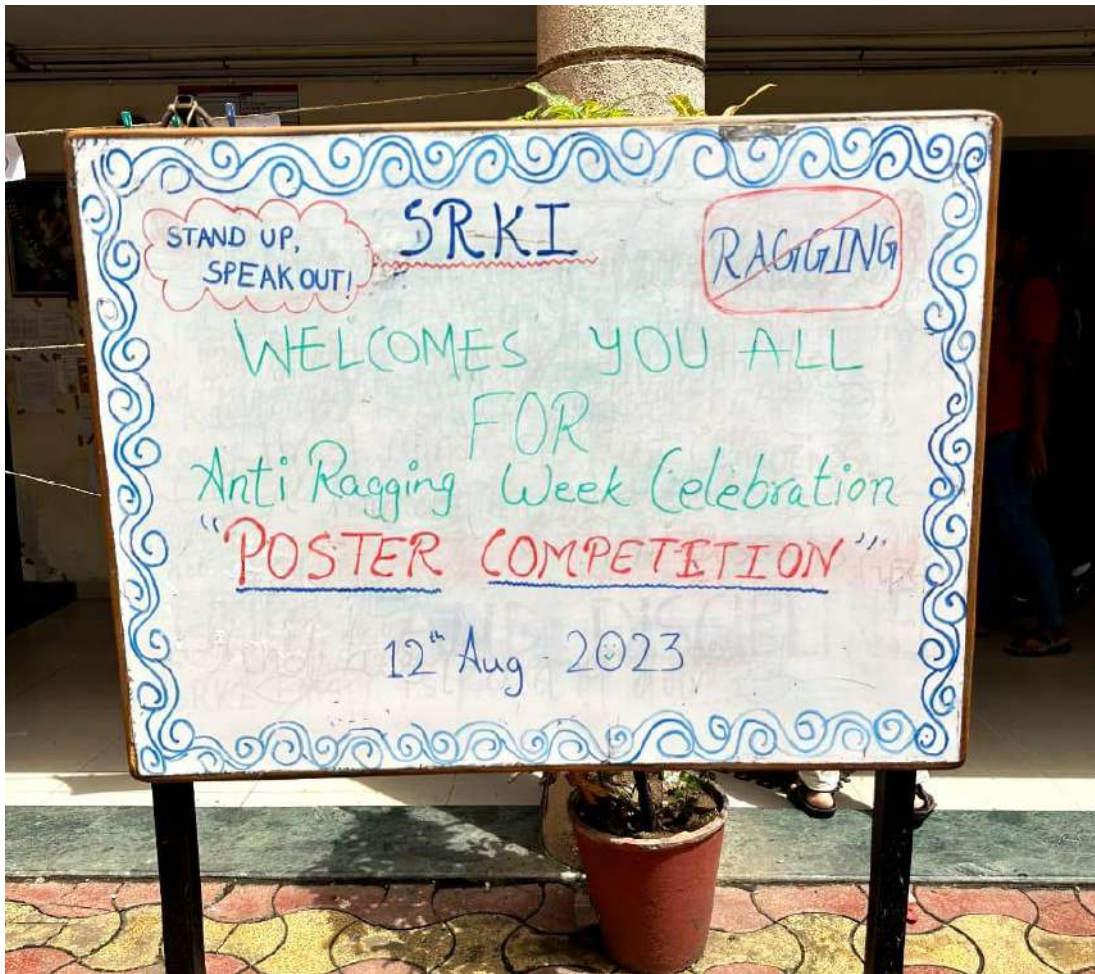 STAND UP,
SPEAK OUT!
SRKI
RAGGING
WELCOMES YOU ALL
FOR
Anti Ragging Week Celebration
"POSTER COMPETETION"
12th Aug - 2023